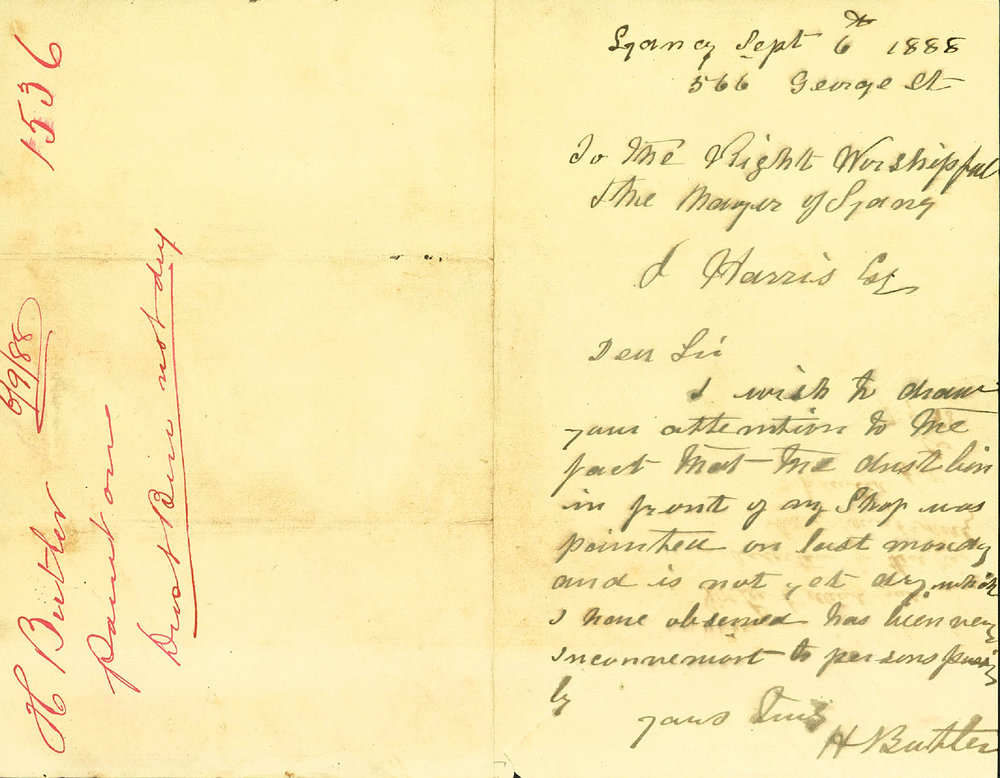 1536
H Butler 6/9/88
paint on
Dust Bin not dry
Sydney Sept 6th 1888
566 George St
To the Right Worshipful
the Mayor of Sydney
J Harris Esq
Dear Sir
I wish to draw
your attention to the
fact that the dust bin
in front of my Shop was
painted on last monday
and is not yet dry which
I have observed has been very
inconvenient to persons passing
by
yours Truly
H Butler